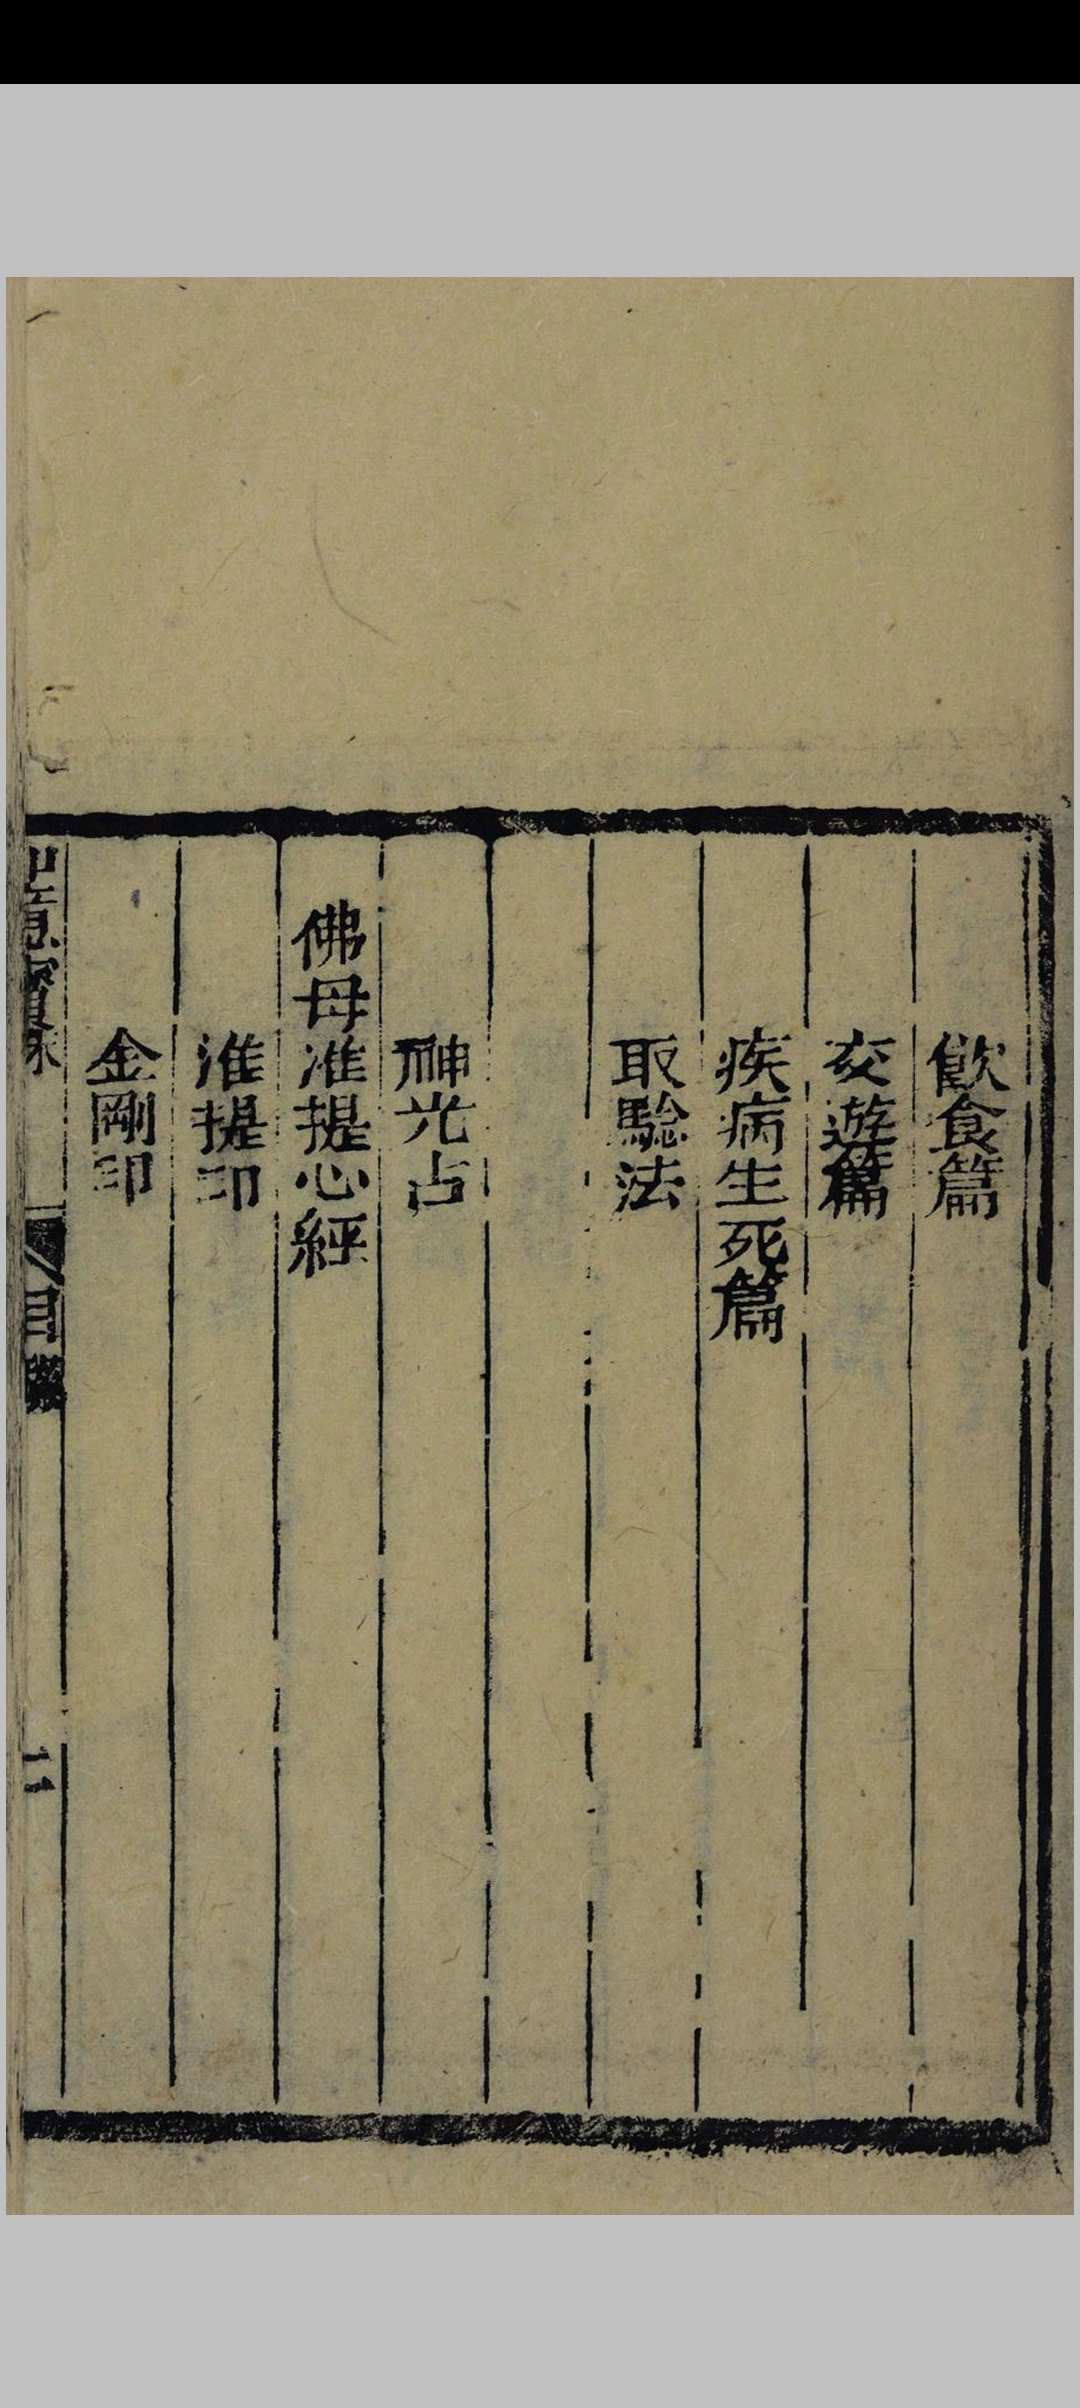 飲食篇
交遊篇
疾病生死篇
取騐法
神光占
佛母准提心經
准提印
金剛印
目
二